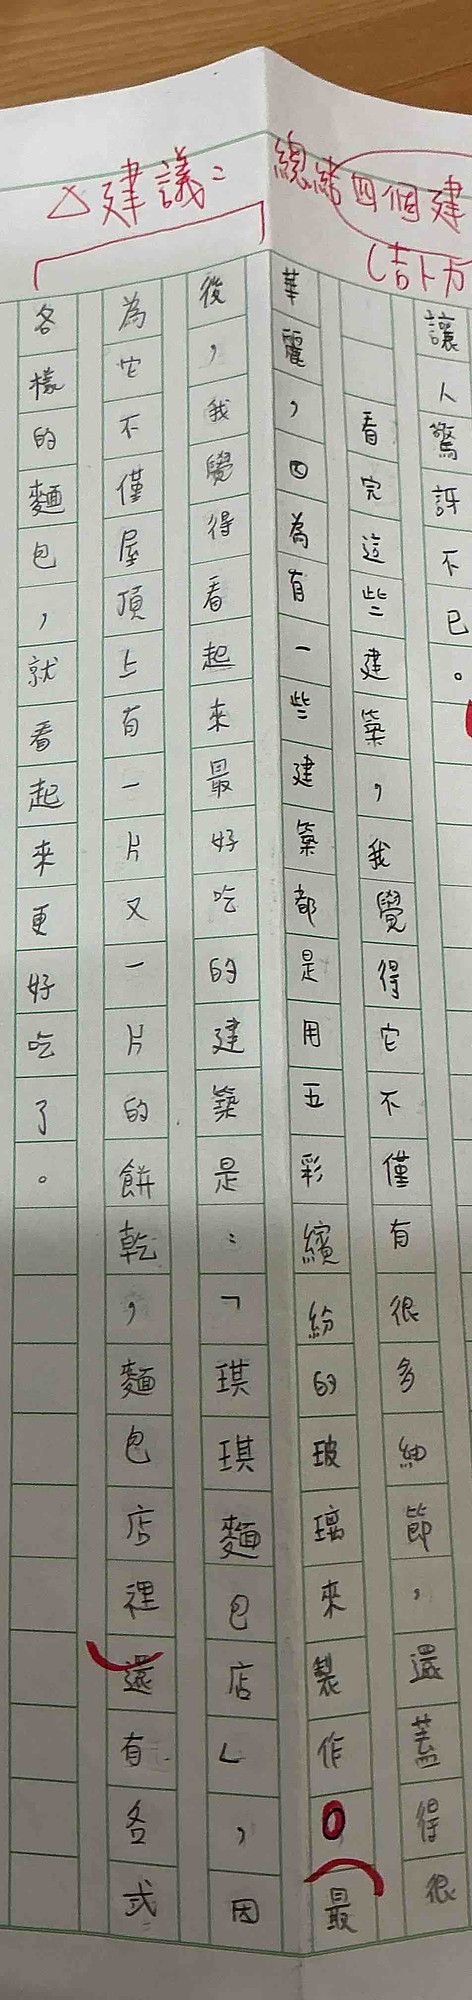 △建議：
總結四個建
讓人驚訝不已。
看完這些建築，我覺得它不僅有很多細節，還蓋得很
華麗，因為有一些建築都是用五彩繽紛的玻璃來製作。最
後，我覺得看起來最好吃的建築是：「琪琪麵包店」，因
為它不僅屋頂上有一片又一片的餅乾，麵包店裡還有各式
各樣的麵包，就看起來更好吃了。